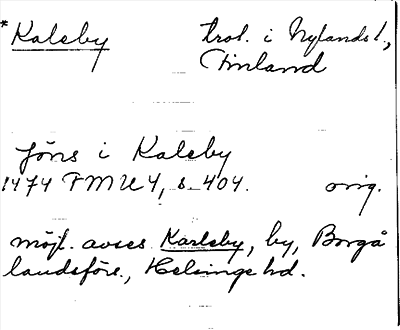 *Kalsby trol. i Nylands l.,
Finland
Jöns i Kalsby
1474 FMU 4, s. 404. orig.
möjl. avses Karlsby, by, Borgå
landsförs., Helsinge hd.